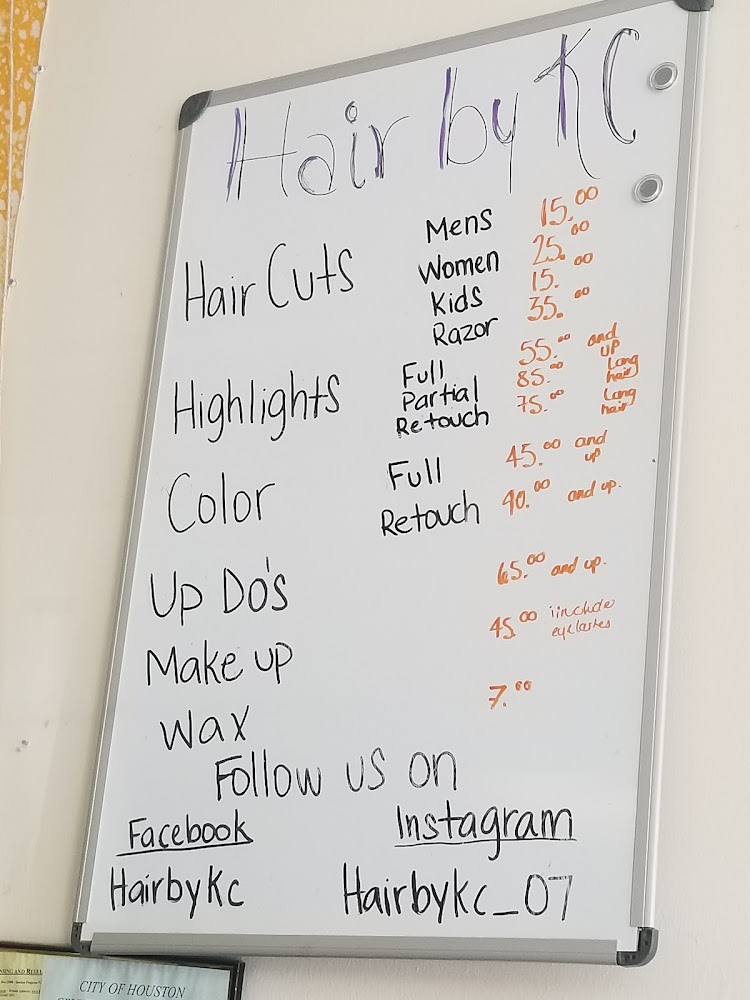 Hair by KC
Hair Cuts
Mens 15.00
Women 25.00
Kids 15.00
Razor 35.00
Highlights
Full 55.00 and up
Partial 85.00 Long hair
Retouch 75.00 Long hair
Color
Full 45.00 and up
Retouch 40.00 and up.
Up Do's 65.00 and up.
Make up 45.00 iinclude eyelashes
Wax 7.00
Follow us on
Facebook Instagram
Hairbykc Hairbykc_07
CITY OF HOUSTON